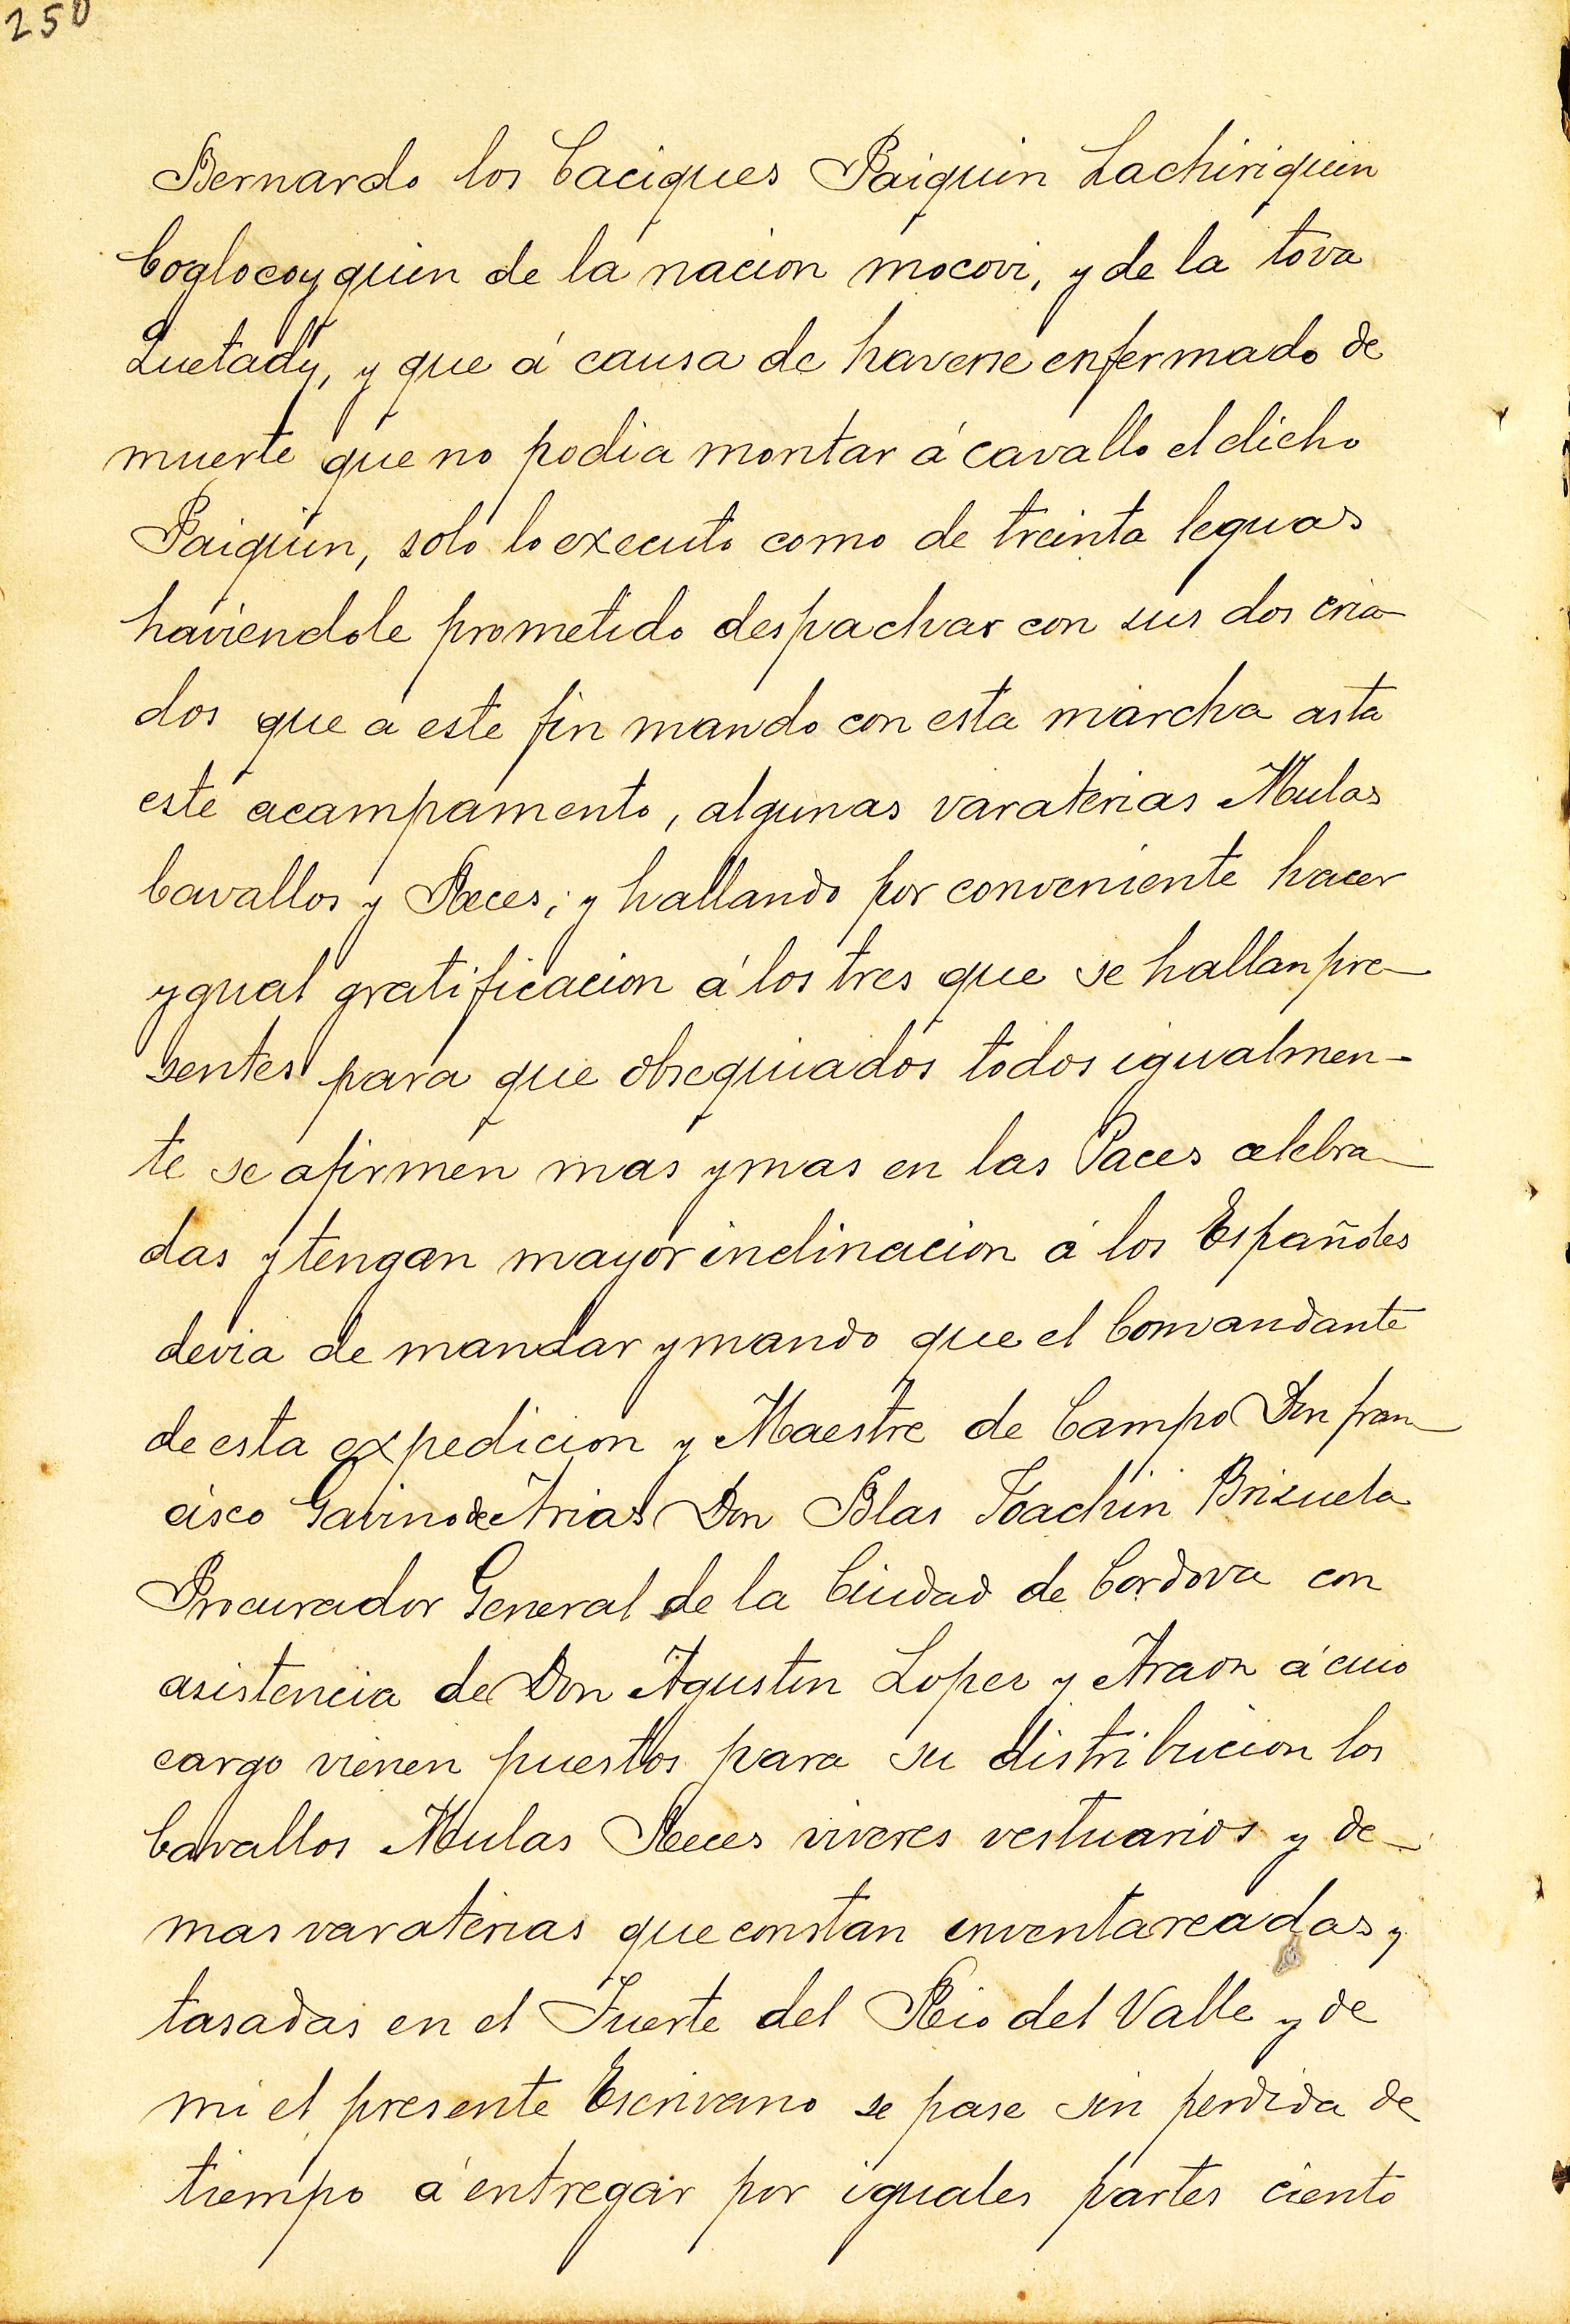 250
Bernardo los Caciques Paiquin Lachiriquin
Coglocoyquin de la nacion mocovi, y de la tova
Quetady, y que á causa de haverse enfermado de
muerte que no podia montar á cavallo el dicho
Paiquin, solo lo executo como de treinta leguas
haviendole prometido despachar con sus dos cria-
dos que a este fin mando con esta marcha asta
este acampamento, algunas varaterias Mulas
Cavallos y Reces; y hallando por conveniente hacer
ygual gratificacion á los tres que se hallan pre-
sentes para que obsequiados todos igualmen-
te se afirmen mas y mas en las Paces celebra-
das y tengan mayor inclinacion á los Españoles
devia de mandar y mando que el Comandante
de esta expedicion y Maestre de Campo Don fran-
cisco Gavino de Arias Don Blas Joachin Brizuela
Procurador General de la Ciudad de Cordova con
asistencia de Don Agustin Lopez y Araon á cuio
cargo vienen puestos para su distribucion los
Cavallos Mulas Reces viveres vestuarios y de-
mas varaterias que constan inventareadas y
tasadas en el Fuerte del Rio del Valle y de
mi el presente Escrivano se pase sin perdida de
tiempo á entregar por iguales partes ciento